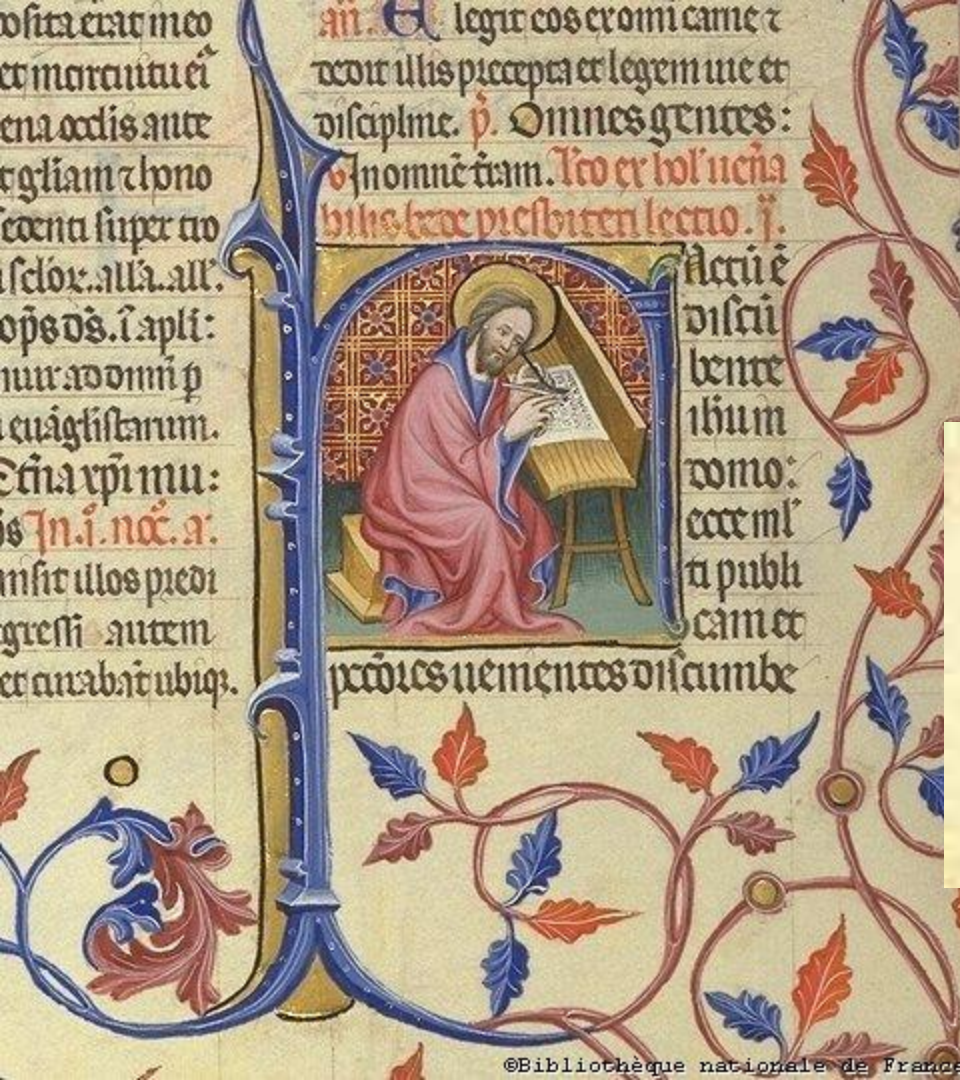 osita erat in eo
et in circuitu ei
ena occlis ante
t gl̄iam ⁊ hono
sedenti super tro
sclōꝝ. all'a. all'.
op̄s dō̄s. i apl̄i:
ad dominū p̄
euāglistarum.
xp̄i mu:
In. i. noc̄. a.
illos predi
gressi autem
et curabāt ubiqꝫ.
an̄. Elegit eos ex om̄i carne ⁊
dedit illis precepta et legem uite et
discipline. p̄. Omnes gentes:
v̄ In omnē t̄ram. Lc̄o ex hol' uen̄a
bilis bede presbiteri lectio. i.
Factū ē
discū
bente
ih̄u in
domo:
ecce ml'
ti publi
cani et
pctōres uenientes discumbe
©Bibliothèque nationale de France